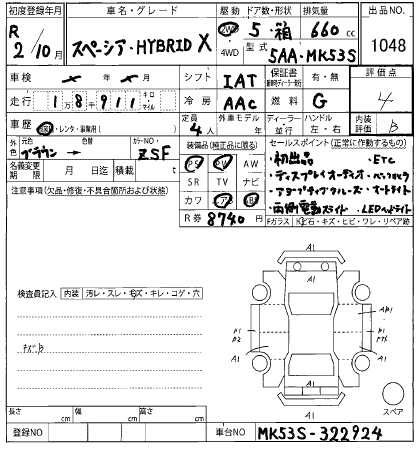 初度登録年月 車名・グレード 駆動 ドア数・形状 排気量 出品NO.
R 2/10月 スペーシア・HYBRID X 2WD 4WD 5・箱 660cc 1048
型式 5AA-MK53S
車検 年 月 シフト IAT 保証書 有・無 評価点
走行 1万8千911 キロ マイル 冷房 AAC 燃料 G 4
車歴 自家・レンタ・事業用( ) 定員 4人 外車モデル 年 ディーラー 並行 ハンドル 左・右 内装評価 B
外色 元色 ブラウン 色替 カラーNO. ZSF 装備品(純正品に限る) セールスポイント(正常に作動するもの)
名義変更期限 月 日迄 積載 t PS PW AW ・初出品 ・ETC
注意事項(欠品・修復・不具合箇所および状態) SR TV ナビ ・ディスプレイオーディオ
カワ エアB ・アダプティブクルーズ ・オートライト
R券 8740円 ・両側電動スライド ・LEDヘッドライト
Fガラス ト石・キズ・ヒビ・ワレ・リペア跡
検査員記入 内装 汚レ・スレ・キズ・キレ・コゲ・穴
キズB
A1
A1
P1
P2
A1
P1
A1
A1
スペア
長さ cm 幅 cm 高さ cm
登録NO 車台NO MK53S-322924